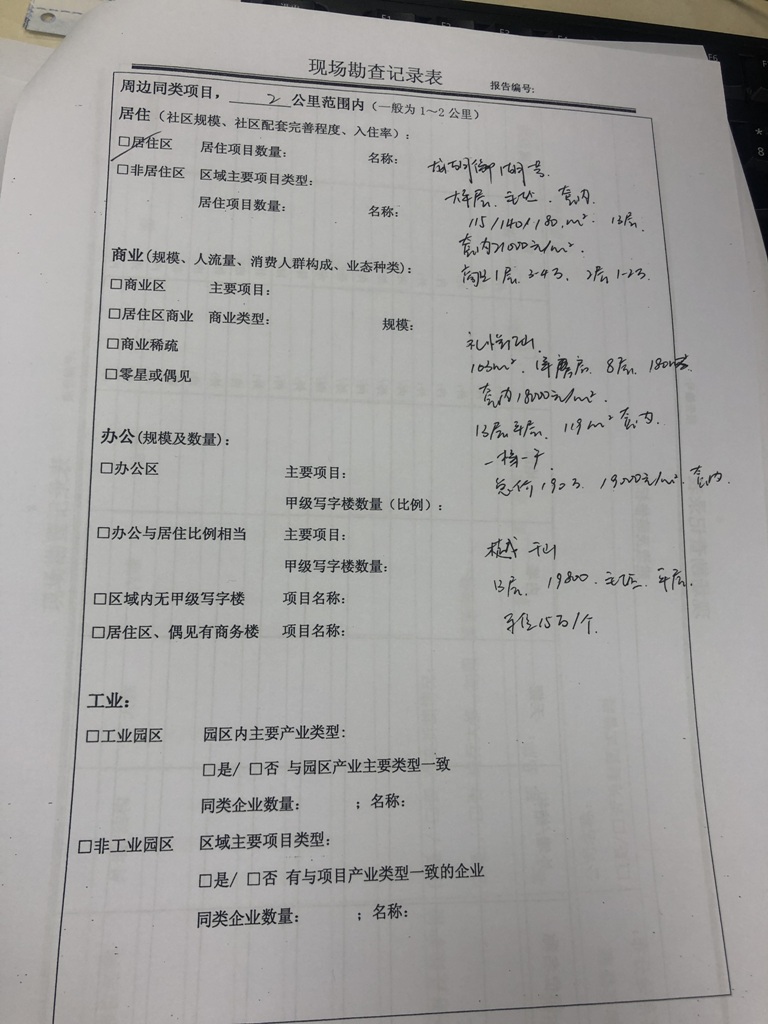 现场勘查记录表
报告编号:
周边同类项目, 2 公里范围内(一般为1~2公里)
居住(社区规模、社区配套完善程度、入住率):
□居住区 居住项目数量: 名称:
□非居住区 区域主要项目类型:
居住项目数量: 名称:
115/140/180.m². 13层.
套内21000元/m².
商业(规模、人流量、消费人群构成、业态种类):
商业1层.3-4万. 2层.1-2万.
□商业区 主要项目:
□居住区商业 商业类型: 规模:
□商业稀疏
103m². 8层.
□零星或偶见
套内18000元/m².
119m² 套内.
办公(规模及数量):
一梯一户
□办公区 主要项目:
总价190万. 19000元/m². 套内.
甲级写字楼数量(比例):
□办公与居住比例相当 主要项目:
甲级写字楼数量:
13层. 19800.
□区域内无甲级写字楼 项目名称:
车位15万/个.
□居住区、偶见有商务楼 项目名称:
工业:
□工业园区 园区内主要产业类型:
□是/ □否 与园区产业主要类型一致
同类企业数量: ;名称:
□非工业园区 区域主要项目类型:
□是/ □否 有与项目产业类型一致的企业
同类企业数量: ;名称: